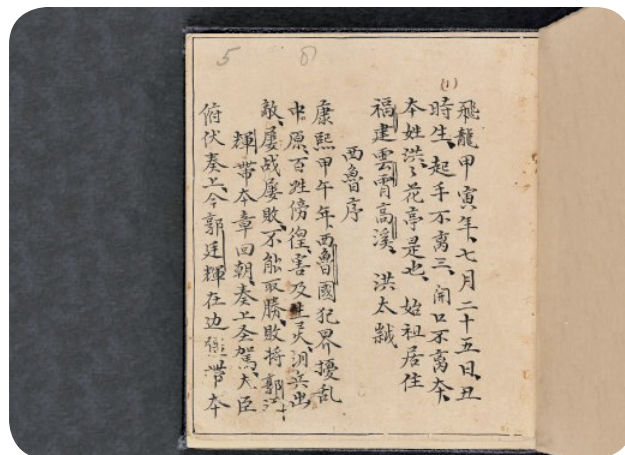 5
(1)
飛龍甲寅年、七月二十五日丑
時生、起手不离三、開口不离本、
本姓洪〻花亭是也、始祖居住
福建雲霄高溪、洪太
西魯序
康熙甲午年、西魯國犯界擾乱
中原、百姓傍徨、害及生灵、兵出
敵、屡战屡敗、不能取勝、敗将郭
輝帶本章回朝、奏上圣駕、大臣
俯伏奏上、今郭廷輝在边帶本